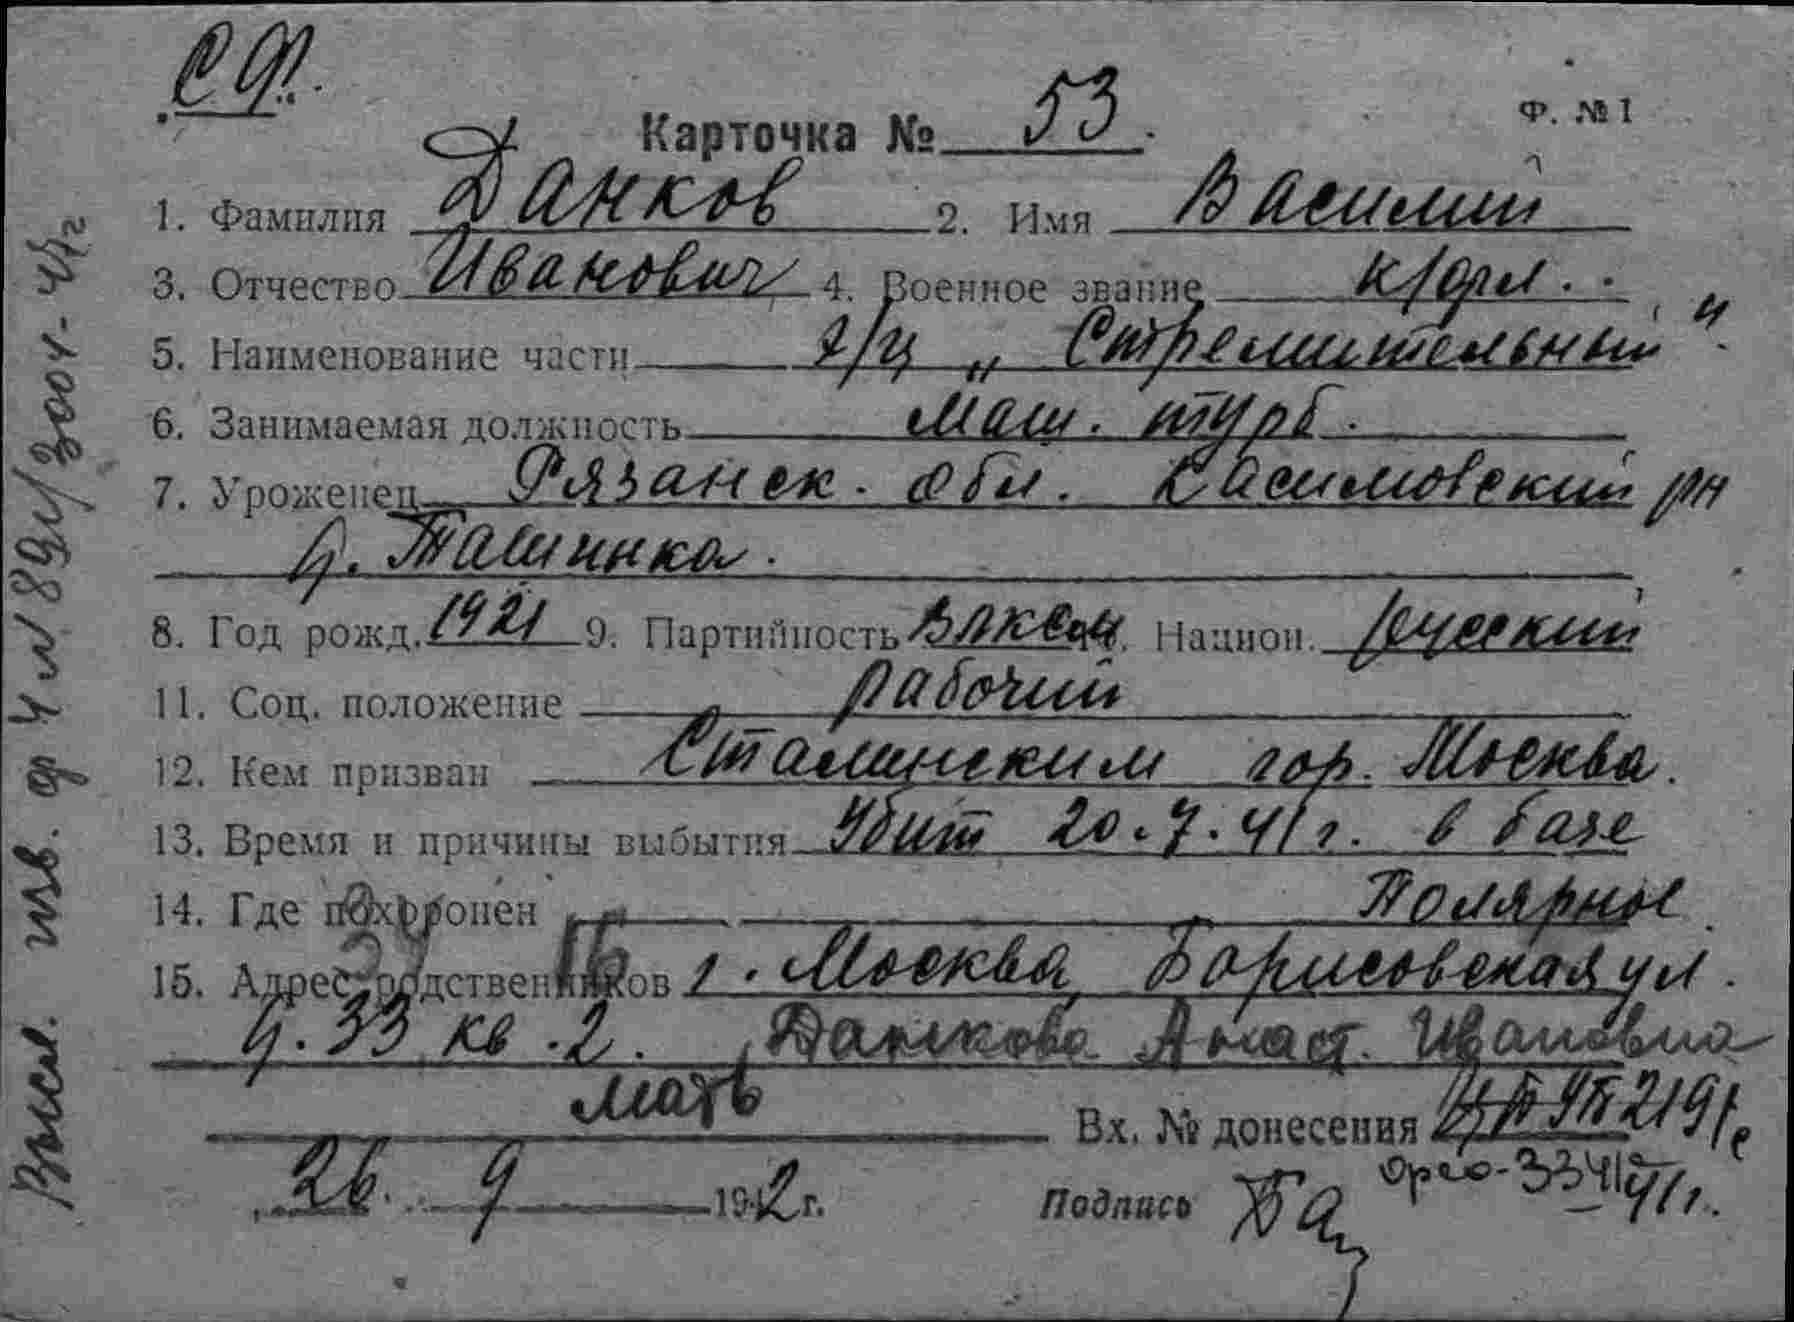 СФ.
Карточка № 53.
Ф. № 1
1. Фамилия Данков 2. Имя Василий
3. Отчество Иванович 4. Военное звание к/фл.
5. Наименование части э/м „Стремительный“.
6. Занимаемая должность маш. турб.
7. Уроженец Рязанск. обл. Касимовский рн
д. Ташинка.
8. Год рожд. 1921 9. Партийность ВЛКСМ. Национ. русский
11. Соц. положение рабочий
12. Кем призван Сталинским гор. Москва.
13. Время и причины выбытия Убит 20.7.41 г. в базе
14. Где похоронен Полярное
15. Адрес родственников г. Москва, Борисовская ул.
д. 33 кв. 2. Данкова Анаст. Ивановна
мать
Вх. № донесения 219/с
26. 9 1942 г. Подпись
орго-334 41 г.
Высл. изв. ф 4 № 89